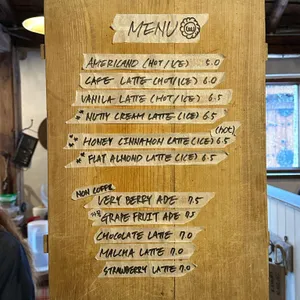 MENU
AMERICANO (HOT/ICE) 5.0
CAFE LATTE (HOT/ICE) 6.0
VANILA LATTE (HOT/ICE) 6.5
NUTTY CREAM LATTE (ICE) 6.5
(hot)
HONEY CINNAMON LATTE (ICE) 6.5
FLAT ALMOND LATTE (ICE) 6.5
NON COFFEE
VERY BERRY ADE 7.5
GRAPE FRUIT ADE 7.5
CHOCOLATE LATTE 7.0
MALCHA LATTE 7.0
STRAWBERRY LATTE 7.0